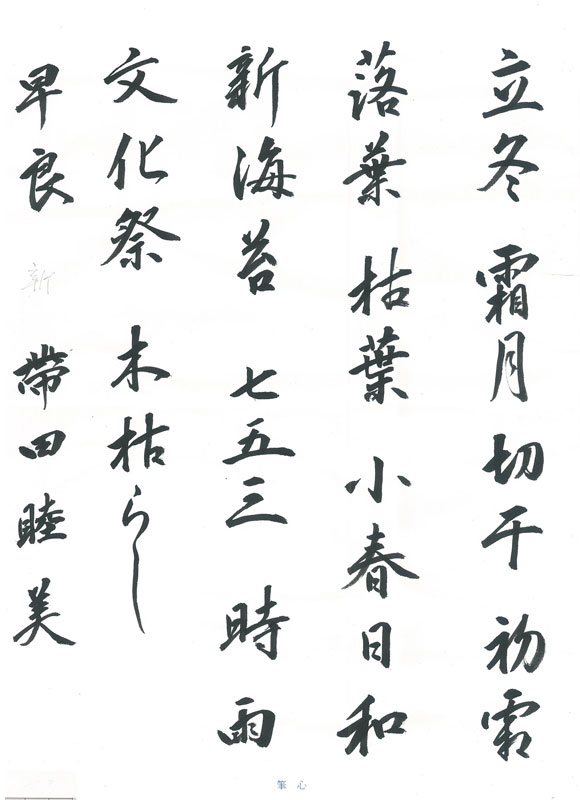 立冬 霜月 切干 初霜
落葉 枯葉 小春日和
新海苔 七五三 時雨
文化祭 木枯らし
早良 新 帶田睦美
筆心